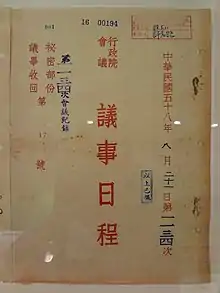 16 00194
中華民國五十八年八月二十一日第一一三四次
以上已備
行政院
會議
議事日程
第一一三四次會議紀錄
秘密部份
議事收回
第17號